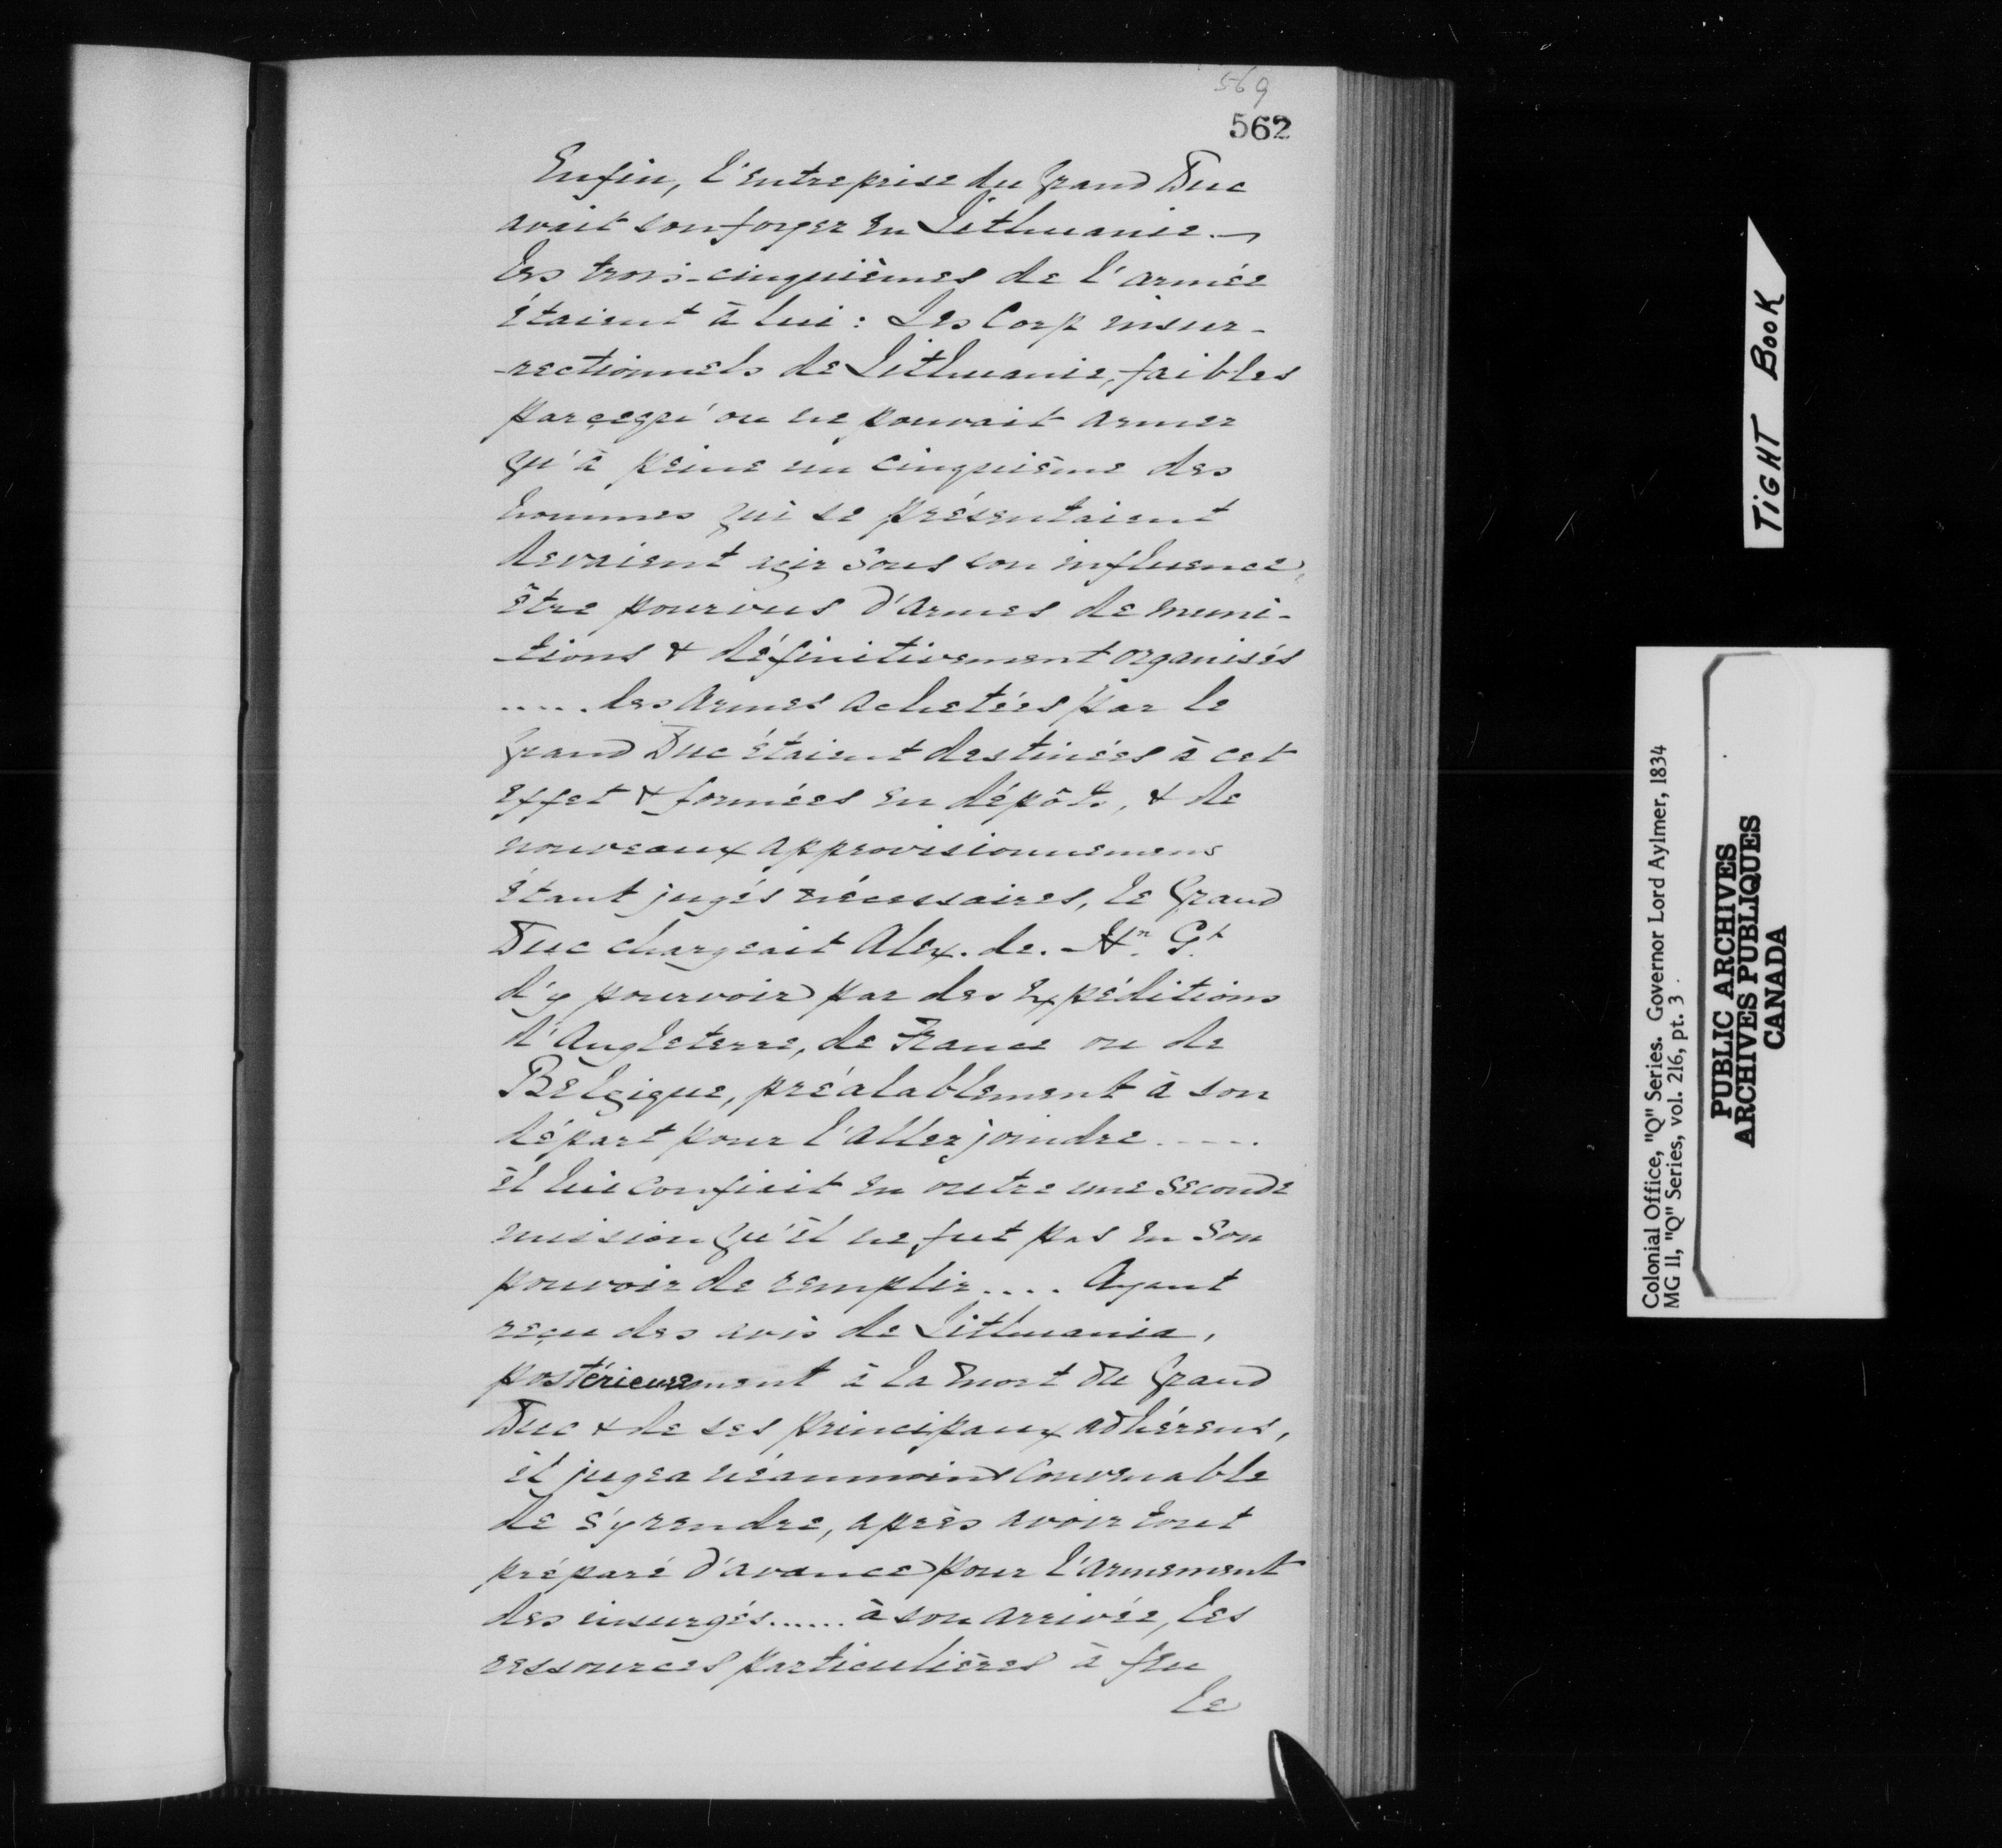 569
562
Enfin, l'entreprise du Grand Duc
avait son foyer en Lithuanie. —
les trois-cinquièmes de l'armée
étaient à lui : Les Corp insur-
-rectionnels de Lithuanie, faibles
parçequ'on ne pouvait armer
qu'à peine un cinquième des
hommes qui se présentaient
devaient agir sous son influence,
être pourvus d'armes de muni-
-tions & définitivement organisés
..... les armes achetées par le
Grand Duc étaient destinées à cet
effet & formées en dépôts, & de
nouveaux approvisionnemens
étant jugés nécessaires, le Grand
Duc chargeait Alex. de.
d'y pourvoir par des expéditions
d'Angleterre, de France ou de
Belgique, préalablement à son
départ pour l'aller joindre .....
il lui confiait en outre une seconde
mission qu'il ne fut pas en son
pouvoir de remplir .... Ayant
reçu des avis de Lithuania,
postérieurement à la mort du Grand
Duc & de ses principaux adhérens,
il jugea néanmoins convenable
de s'y rendre, après avoir tout
préparé d'avance pour l'armement
des insurgés ...... à son arrivée, les
ressources particulières à feu
le
TIGHT BOOK
Colonial Office, "Q" Series. Governor Lord Aylmer, 1834
MG 11, "Q" Series, vol. 216, pt. 3
PUBLIC ARCHIVES
ARCHIVES PUBLIQUES
CANADA